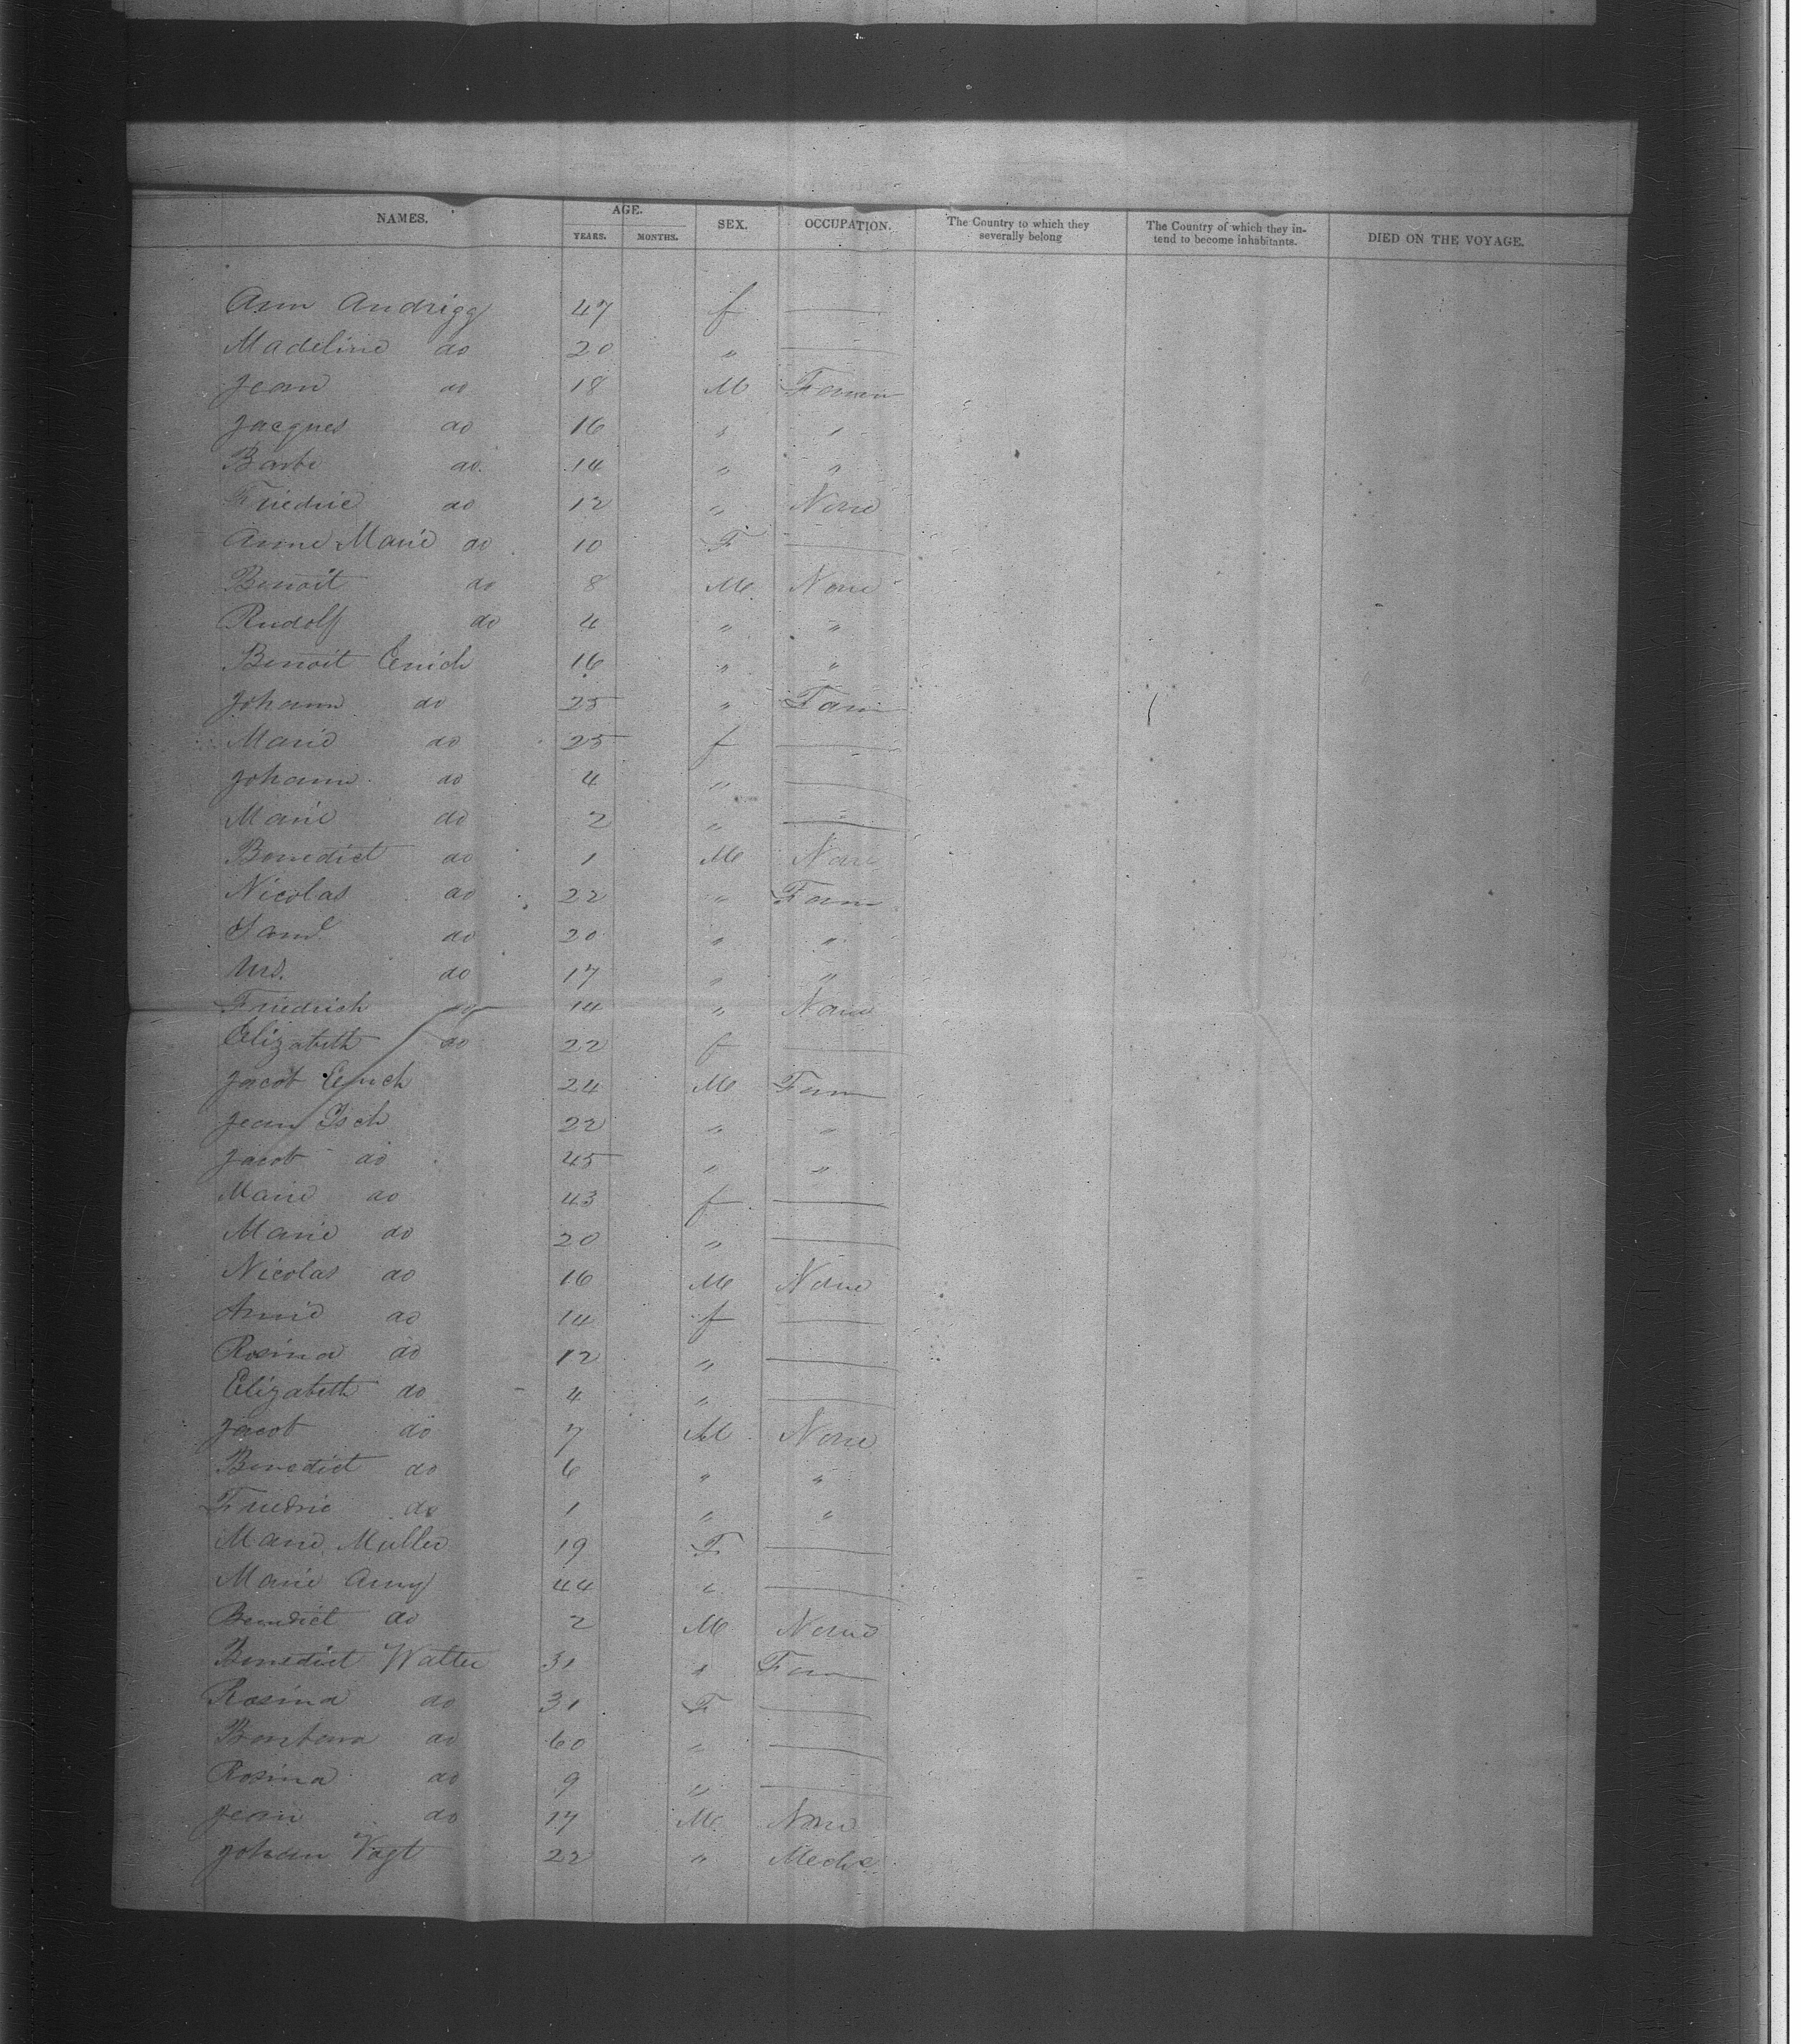 NAMES. AGE. YEARS. MONTHS. SEX. OCCUPATION. The Country to which they severally belong The Country of which they intend to become inhabitants. DIED ON THE VOYAGE.
Ann Andrigg 47 f —
Madeline do 20 " —
Jean do 18 M Farm
Jacques do 16 " "
Barbe do 14 " "
Friedric do 12 " None
Anne Marie do 10 F —
Benoit do 8 M None
Rudolf do 4 " "
Benoit Emch 16 " "
Johann do 25 " Farm
Marie do 25 f —
Johann do 4 " —
Marie do 2 " —
Benedict do 1 M None
Nicolas do 22 " Farm
Saml do 20 " "
Urs. do 17 " "
Friedrich do 14 " None
Elizabeth do 22 f —
Jacob Emch 24 M Farm
Jean Isch 22 " "
Jacob do 45 " "
Marie do 43 f —
Marie do 20 " —
Nicolas do 16 M None
Annie do 14 f —
Rosina do 12 " —
Elizabeth do 4 " —
Jacob do 7 M None
Benedict do 6 " "
Friedric do 1 " "
Marie Muller 19 F —
Marie Amy 44 " —
Benedict do 2 M None
Benedict Walter 31 " Farm
Rosina do 31 F —
Barbara do 60 " —
Rosina do 9 " —
Jean do 17 M None
Johan Vogt 22 " Mechc